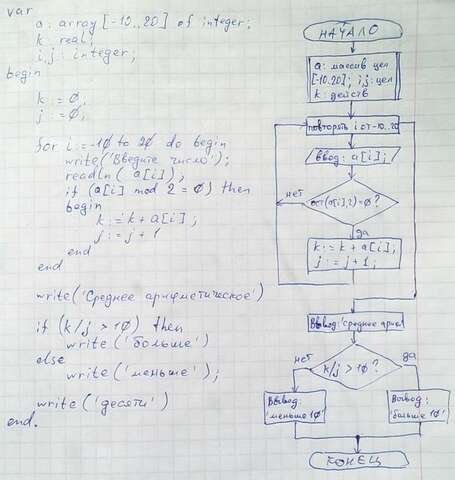 var
a: array[-10..20] of integer;
k: real;
i,j: integer;
begin
k:=0;
j:=0;
for i:=-10 to 20 do begin
write('Введите число');
readln( a[i]);
if (a[i] mod 2=0) then
begin
k:=k+a[i];
j:=j+1
end
end
write('Среднее арифметическое')
if (k/j > 10) then
write('больше')
else
write('меньше');
write('десяти')
end.
НАЧАЛО
a: массив цел
[-10.20]; i,j: цел
k: действ
повторять i от -10..20
Ввод: a[i];
нет
ост(a[i],2)=0?
да
k:=k+a[i];
j:=j+1;
Вывод:'среднее ариф
нет
k/j > 10?
да
Вывод:
'меньше 10'
Вывод:
'больше 10'
КОНЕЦ